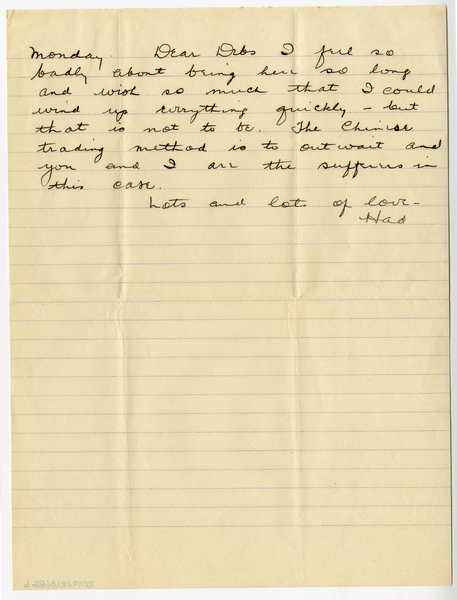 Monday. Dear Debs I feel so
badly about being here so long
and wish so much that I could
wind up everything quickly – but
that is not to be. The Chinese
trading method is to outwait and
you and I are the sufferers in
this case.
Lots and lots of love –
Had